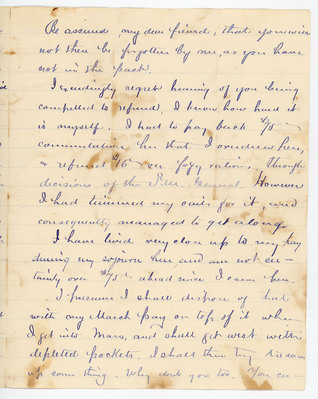 Be assured my dear friend, that you will
not then be forgotten by me, as you have
not in the past.
I exceedingly regret hearing of you being
compelled to refund. I know how hard it
is myself. I had to pay back
commutation that I here,
& refund on rations, through
decisions of the General. However
I had trimmed my sails for it, and
consequently managed to get along.
I have lived very close up to my pay
during my sojourn here and am not cer-
tainly over ahead since I came here.
I presume I shall dispose of that
with my March pay on top of it when
I get into Mass, and shall get west with
depleted pockets. I shall then try to save
up something. Why don't you too. You cer-